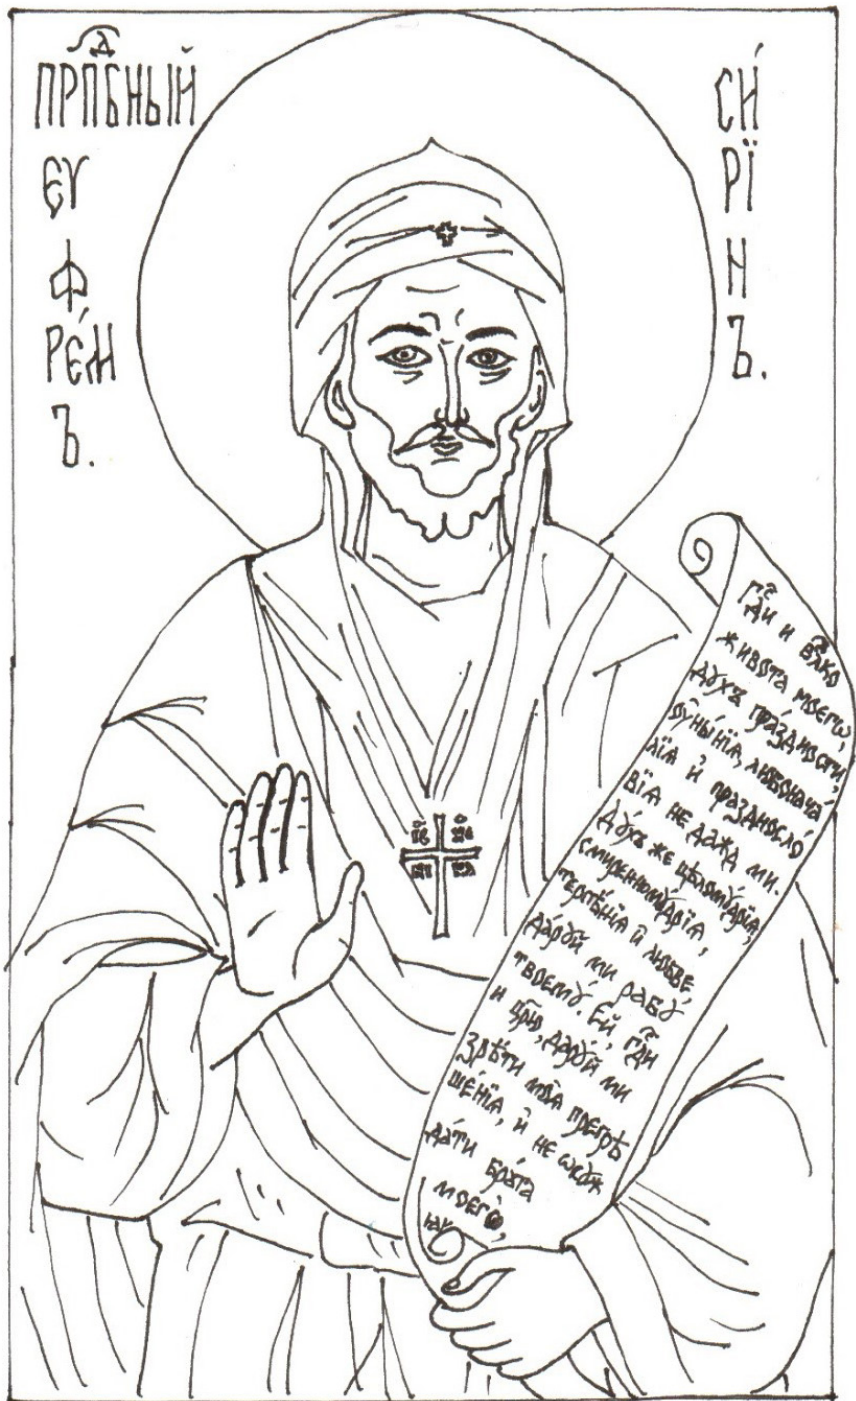 прпⷣбный
єѵ
ф
ре́м
ъ.
си́
рї
н
ъ.
іс хс
ни ка
Гдⷭ҇и и влⷣко
живота моегѡ,
дꙋхъ пра́здности,
ᲂу҆ны́нїѧ, любонача́
лїѧ и҆ празднⷭосло́
вїѧ не даждь ми.
Дꙋ́хъ же цѣломꙋ́дрїѧ,
смиренномꙋ́дрїѧ,
терпѣ́нїѧ и҆ любве́
да́рꙋй ми рабꙋ̀
твоемꙋ̀. Ей, гдⷭ҇и
и цр҃ю, да́рꙋй ми
зрѣ́ти моѧ̑ прегрѣ
ше́нїѧ, и҆ не ѡсꙋж
да́ти бра́та
моегѡ̀,
ꙗ҆кѡ